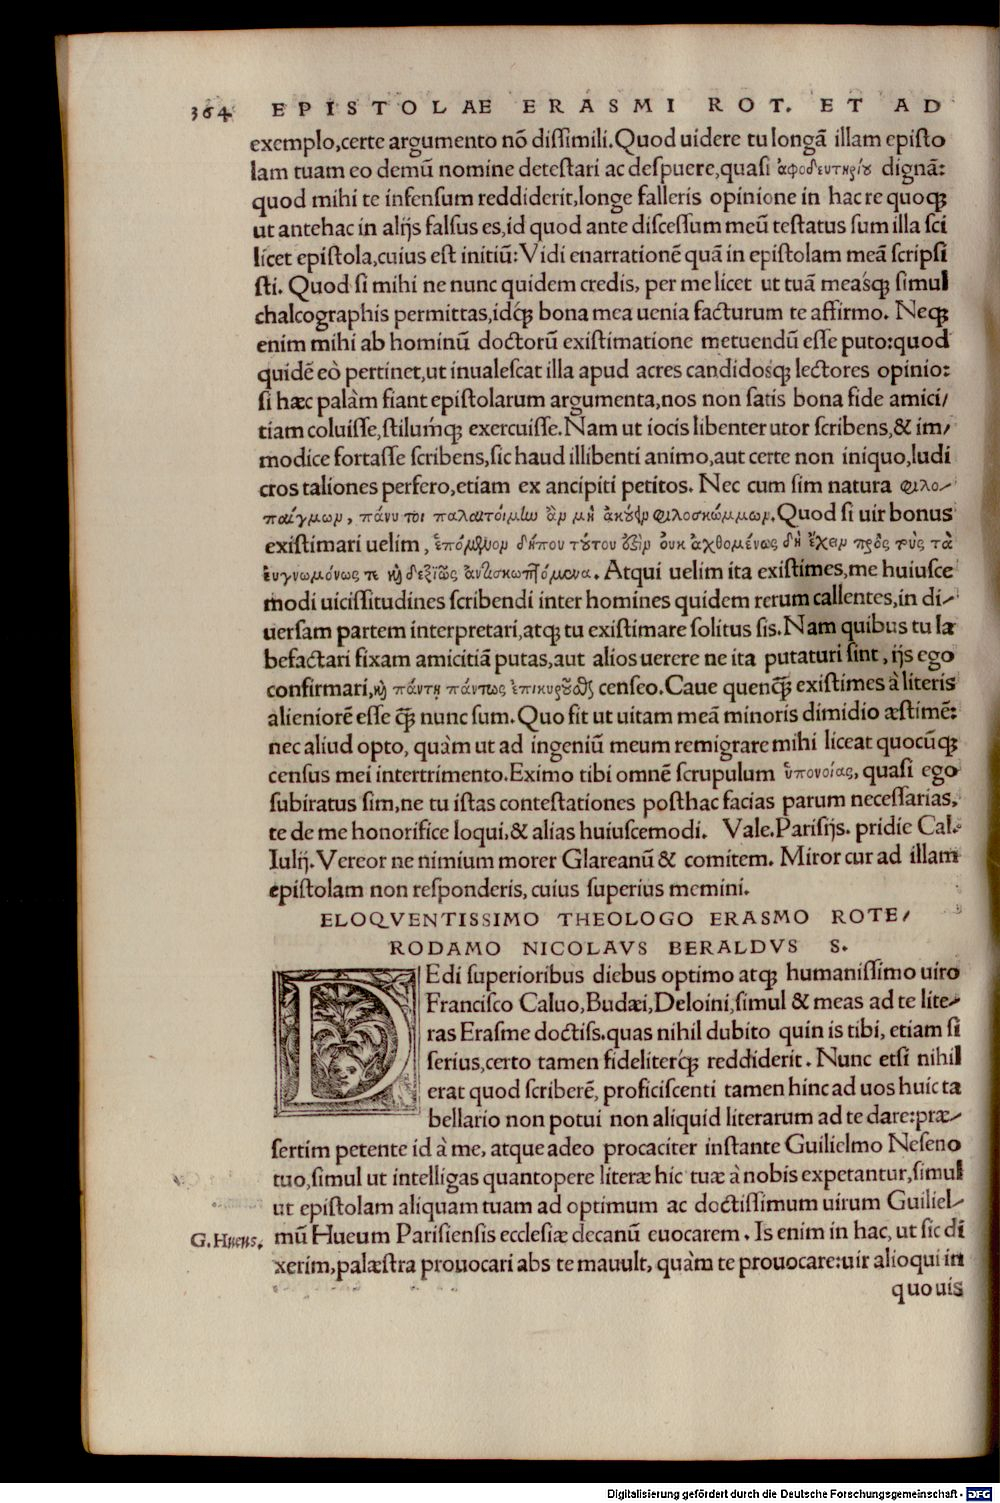 364 EPISTOLAE ERASMI ROT. ET AD
exemplo,certe argumento nõ dissimili.Quod uidere tu longã illam episto
lam tuam eo demũ nomine detestari ac despuere,quasi ἀφοδευτηρίου dignã:
quod mihi te infensum reddiderit,longe falleris opinione in hac re quoq;
ut antehac in alijs falsus es,id quod ante discessum meũ testatus sum illa sci
licet epistola,cuius est initiũ: Vidi enarrationẽ quã in epistolam meã scripsi
sti. Quod si mihi ne nunc quidem credis, per me licet ut tuã measq́; simul
chalcographis permittas,idq́; bona mea uenia facturum te affirmo. Neq;
enim mihi ab hominũ doctorũ existimatione metuendũ esse puto:quod
quidẽ eò pertinet,ut inualescat illa apud acres candidosq́; lectores opinio:
si hæc palàm fiant epistolarum argumenta,nos non satis bona fide amici/
tiam coluisse,stilumq́; exercuisse.Nam ut iocis libenter utor scribens,& im/
modice fortasse scribens,sic haud illibenti animo,aut certe non iniquo,ludi
cros taliones perfero,etiam ex ancipiti petitos. Nec cum sim natura φιλο-
παίγμων, πάνυ τοι παλαιτοίμlω ἂν μὴ ἀκούειν φιλοσκώμμων.Quod si uir bonus
existimari uelim, ἑπόμενον δήπου τούτου ὀξὶν οὐκ ἀχθομένως δὴ ἔχειν πρὸς τοὺς τὰ
εὐγνωμόνως τε κὴ δεξιῶς ἀντισκωπτόμενα. Atqui uelim ita existimes,me huiusce
modi uicissitudines scribendi inter homines quidem rerum callentes,in di-
uersam partem interpretari,atq; tu existimare solitus sis.Nam quibus tu la
befactari fixam amicitiã putas,aut alios uerere ne ita putaturi sint, ijs ego
confirmari,κὴ πάντῃ πάντως ἐπικυροῦσθς censeo.Caue quenq̃; existimes à literis
alieniorẽ esse q̃; nunc sum. Quo fit ut uitam meã minoris dimidio æstimẽ:
nec aliud opto, quàm ut ad ingeniũ meum remigrare mihi liceat quocũq;
census mei intertrimento.Eximo tibi omnẽ scrupulum ὑπονοίας, quasi ego
subiratus sim,ne tu istas contestationes posthac facias parum necessarias,
te de me honorifice loqui,& alias huiuscemodi. Vale.Parisijs. pridie Cal.
Iulij.Vereor ne nimium morer Glareanũ & comitem. Miror cur ad illam
epistolam non responderis, cuius superius memini.
ELOQVENTISSIMO THEOLOGO ERASMO ROTE/
RODAMO NICOLAVS BERALDVS S.
DEdi superioribus diebus optimo atq; humanissimo uiro
Francisco Caluo,Budæi,Deloini,simul & meas ad te lite-
ras Erasme doctiss.quas nihil dubito quin is tibi, etiam si
serius,certo tamen fideliterq́; reddiderit. Nunc etsi nihil
erat quod scriberẽ, proficiscenti tamen hinc ad uos huic ta
bellario non potui non aliquid literarum ad te dare:præ-
sertim petente id à me, atque adeo procaciter instante Guilielmo Neseno
tuo,simul ut intelligas quantopere literæ hic tuæ à nobis expetantur,simul
ut epistolam aliquam tuam ad optimum ac doctissimum uirum Guiliel-
G.Huens. mũ Hueum Parisiensis ecclesiæ decanũ euocarem. Is enim in hac, ut sic di
xerim,palæstra prouocari abs te mauult, quàm te prouocare:uir alioqui in
quouis
Digitalisierung gefördert durch die Deutsche Forschungsgemeinschaft - DFG